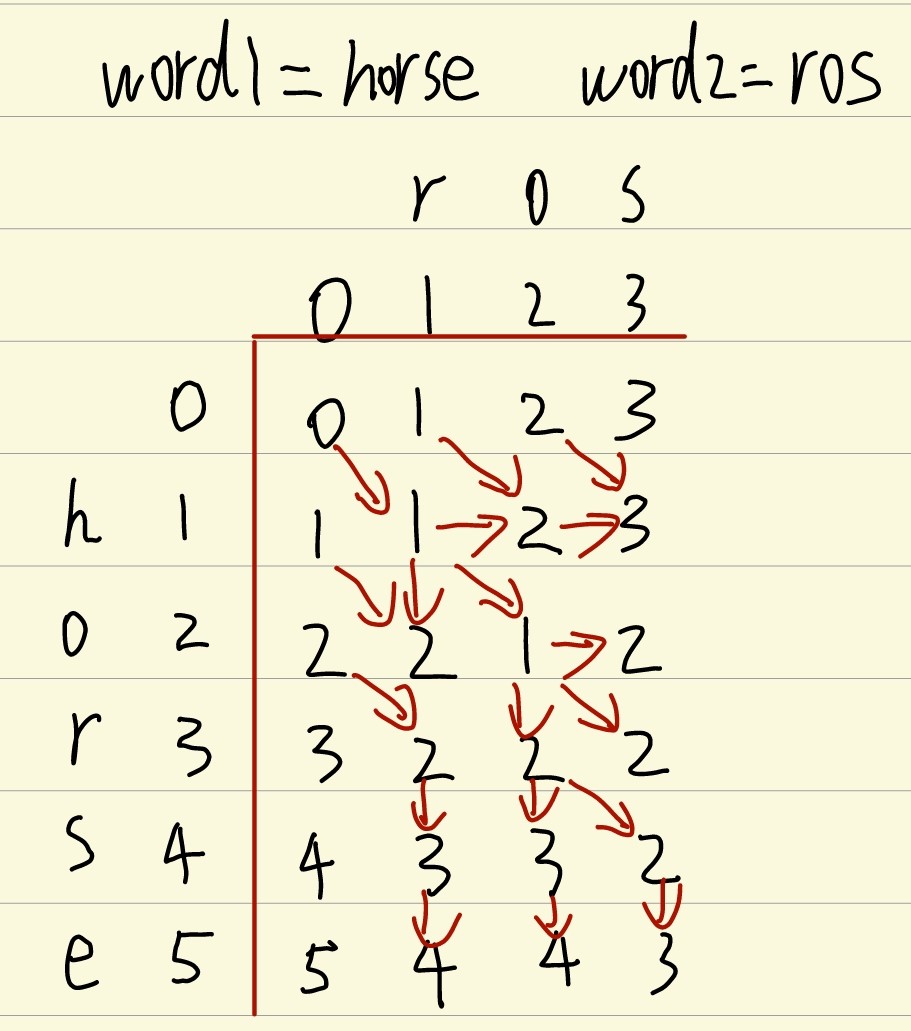 word1 = horse word2 = ros
r o s
0 1 2 3
0 0 1 2 3
h 1 1 1 2 3
o 2 2 2 1 2
r 3 3 2 2 2
s 4 4 3 3 2
e 5 5 4 4 3